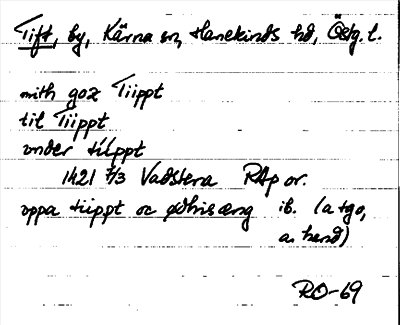 Tift, by, Kärna sn, Hanekinds hd, Östg. l.
mith goz Tiippt
til Tiippt
vnder tiippt
1421 7/3 Vadstena RAp or.
oppa tiippt oc ødhis æng ib. (a tgo,
a. hand)
RO-69